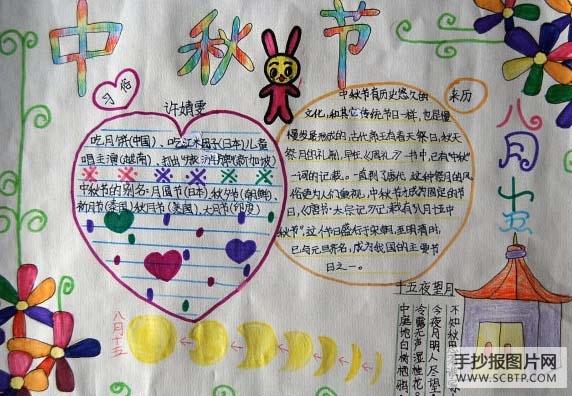 中秋节
习俗
许婧雯
吃月饼(中国)、吃江米团子(日本)儿童
唱主演(越南)、
中秋节的别名:月圆节(日本)秋夕节(朝鲜)
新月节(泰国)秋月节(美国)、大月节(印度)
来历
中秋节有历史悠久的
文化,和其它传统节日一样,也是慢
慢发展形成的,古代帝王有春天祭日,秋天
祭月的礼制,早在《周礼》一书中,已有"中秋"
一词的记载。一直到了唐代,这种祭月的风
俗更为人们重视,中秋节才成为固定的节
日,《唐书·太宗记》记载有"八月十五中
秋节",这个节日盛行于宋朝,至明清时,
已与元旦齐名,成为我国的主要节
日之一。
八月十五
八月十五
十五夜望月
中庭地白树栖鸦,
冷露无声湿桂花。
今夜月明人尽望
不知秋思
手抄报图片网
WWW.SCBTP.COM